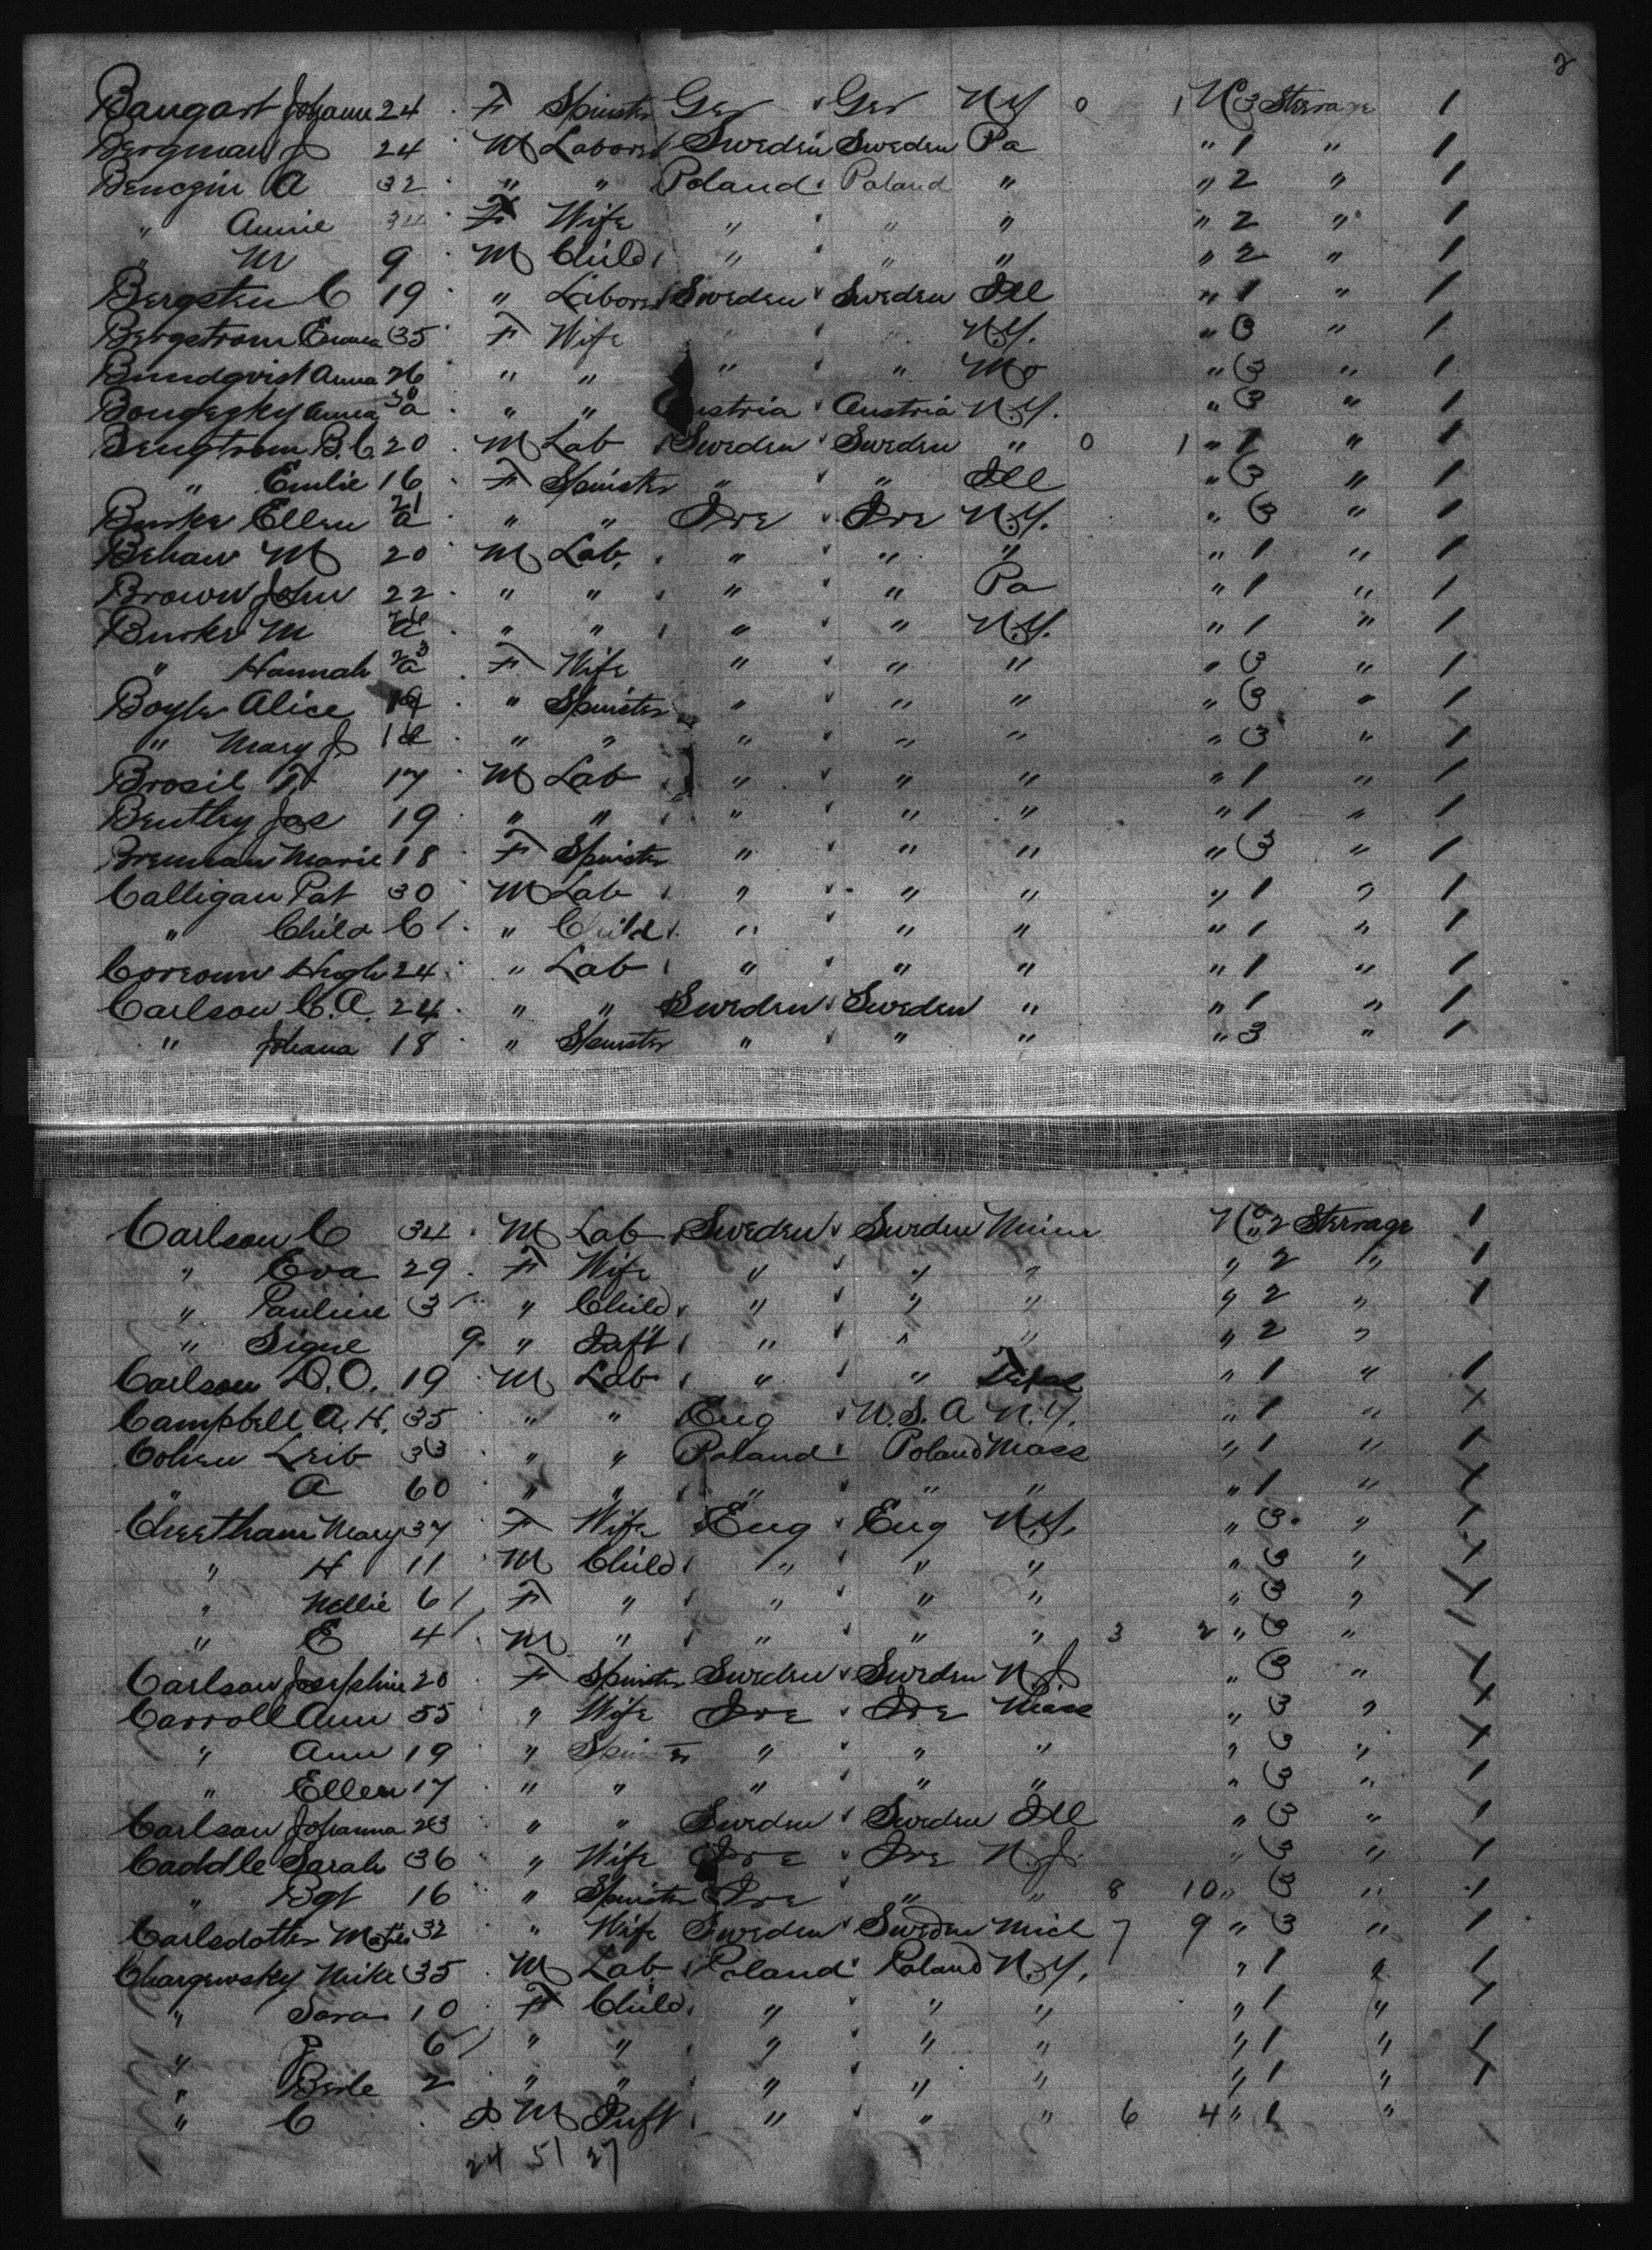 2
Baugart Johann 24 F Spinster Ger Ger N.Y. 0 1 No 3 Steerage 1
Bergman J 24 M Laborer Sweden Sweden Pa " 1 " 1
Benczin A 32 " " Poland Poland " " 2 " 1
" Annie 34 F Wife " " " " 2 " 1
" M 9 M Child " " " " 2 " 1
Bergsten C 19 " Laborer Sweden Sweden Ill " 1 " 1
Bergstrom Emma 35 F Wife " " N.Y. " 3 " 1
Bundqvist Anna 26 " " " " Mo " 3 " 1
Annea 30 " " Austria Austria N.Y. " 3 " 1
Bengtrom B.C. 20 M Lab Sweden Sweden " 0 1 " 1 " 1
" Emlie 16 F Spinster " " Ill " 3 " 1
Burke Ellen 21 " " Ire Ire N.Y. " 3 " 1
Behan M 20 M Lab. " " " " 1 " 1
Brown John 22 " " " " Pa " 1 " 1
Burke M " " " " N.Y. " 1 " 1
" Hannah 23 F Wife " " " " 3 " 1
Boyle Alice " Spinster " " " " 3 " 1
" Mary J " " " " " " 3 " 1
Brosil T 17 M Lab " " " " 1 " 1
Bentley Jas 19 " " " " " " 1 " 1
Brennan Marie 18 F Spinster " " " " 3 " 1
Calligan Pat 30 M Lab " " " " 1 " 1
" Child 6 " Child " " " " 1 " 1
Hugh 24 " Lab " " " " 1 " 1
Carlson C.A. 24 " " Sweden Sweden " " 1 " 1
" Johana 18 " Spinster " " " " 3 " 1
Carlson C 34 M Lab Sweden Sweden Minn No 2 Steerage 1
" Eva 29 F Wife " " " " 2 " 1
" Pauline 3 " Child " " " " 2 " 1
" Signe 9 " Inft " " " " 2 "
Carlson D.O. 19 M Lab " " Texas " 1 " 1
Campbell A.H. 35 " " Eng U.S.A N.Y. " 1 " 1
Cohen Leib 33 " " Poland Poland Mass " 1 " 1
" A 60 " " " " " " 1 " 1
Cheetham Mary 37 F Wife Eng Eng N.Y. " 3 " 1
" H 11 M Child " " " " 3 " 1
" Nellie 6 F " " " " " 3 " 1
" E 4 M " " " " 3 2 " 3 " 1
Carlson Josephine 20 F Spinster Sweden Sweden N.J " 3 " 1
Carroll Ann 55 " Wife Ire Ire Mass " 3 " 1
" Ann 19 " Spinster " " " " 3 " 1
" Ellen 17 " " " " " " 3 " 1
Carlson Johanna 23 " " Sweden Sweden Ill " 3 " 1
Caddle Sarah 36 " Wife Ire Ire N.J. " 3 " 1
" Bgt 16 " Spinster Ire " " 8 10 " 3 " 1
Carlsdotter 32 " Wife Sweden Sweden Mich 7 9 " 3 " 1
Chargewsky Mike 35 M Lab Poland Poland N.Y. " 1 " 1
" Sara 10 F Child " " " " 1 " 1
" 6 " " " " " " 1 " 1
" Beile 2 " " " " " " 1 " 1
" C M Inft " " " 6 4 " 1 "
24 51 27